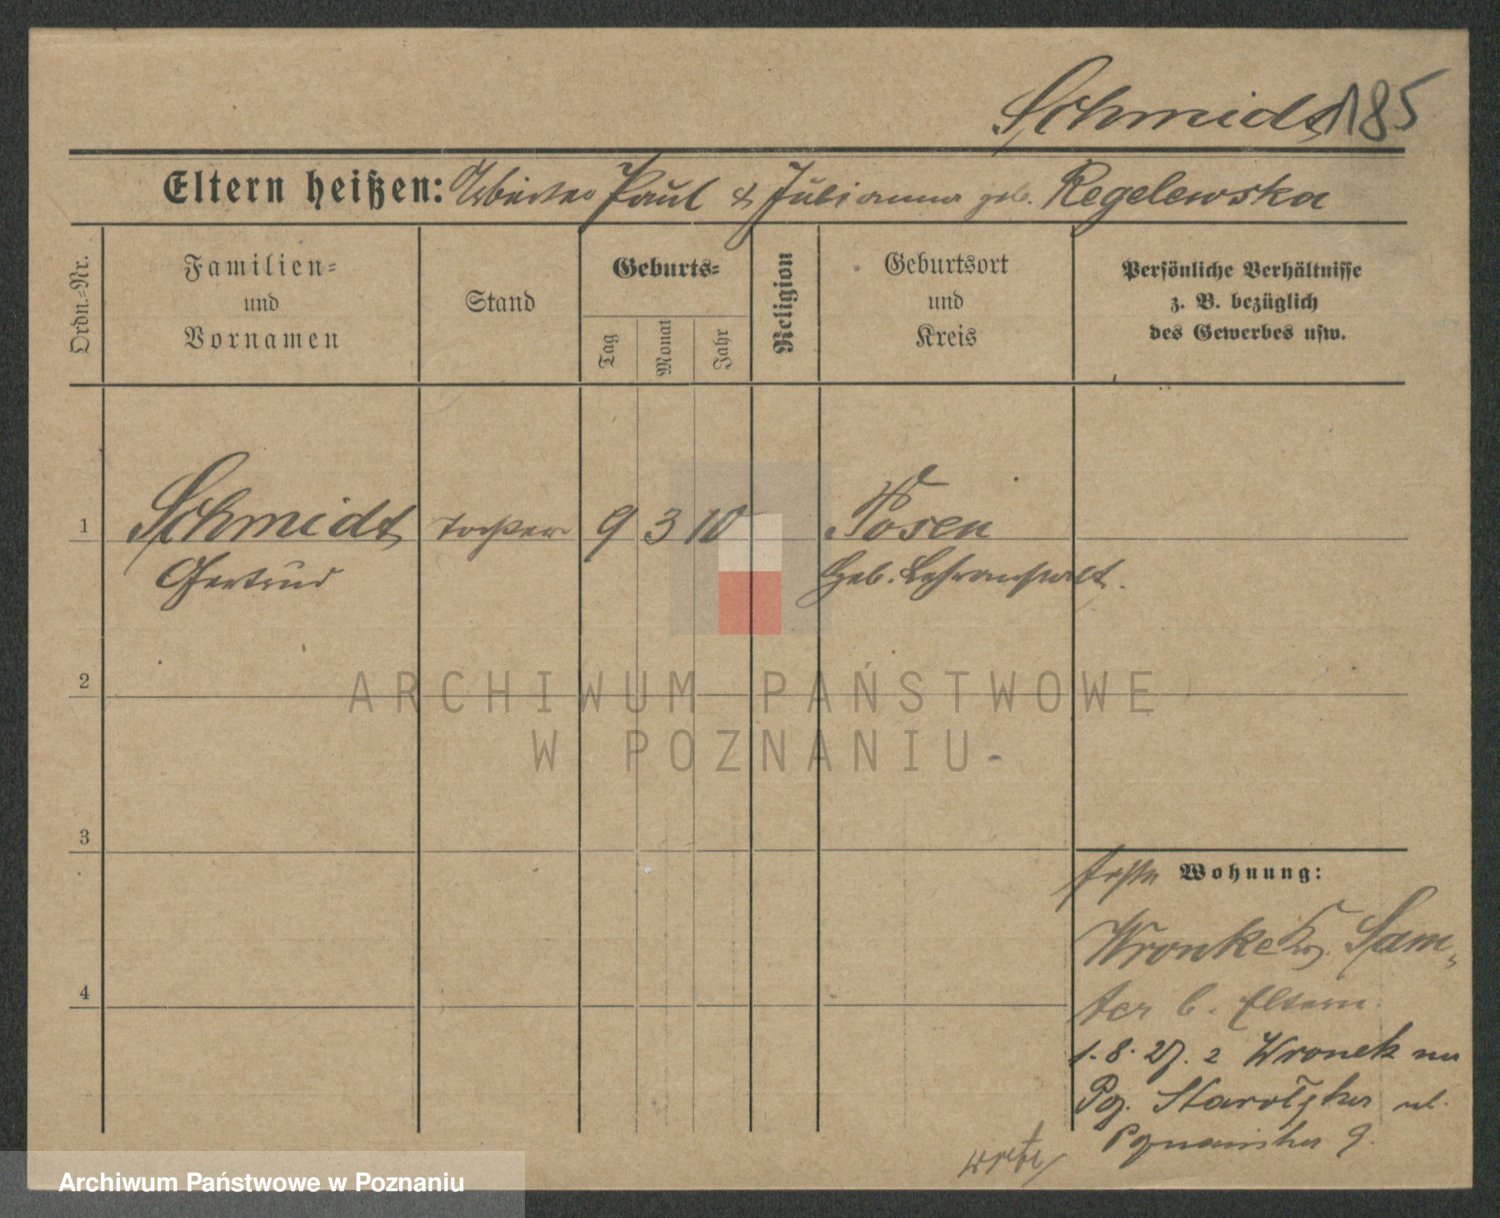 Schmidt 185
Eltern heißen: Arbeiter Paul & Julianna geb. Regelewska
Ordn.-Nr.
Familien-
und
Vornamen
Stand
Geburts-
Tag
Monat
Jahr
Religion
Geburtsort
und
Kreis
Persönliche Verhältnisse
z. B. bezüglich
des Gewerbes usw.
1 Schmidt Tochter 9 3 10 Posen
Gertrud Geb. Lehranstalt.
2
3
4
Wohnung:
Wronke Krs. Sam-
ter b. Eltern.
1.8.27. z Wronek
Pozn.
9.
ARCHIWUM PAŃSTWOWE
W POZNANIU
Archiwum Państwowe w Poznaniu